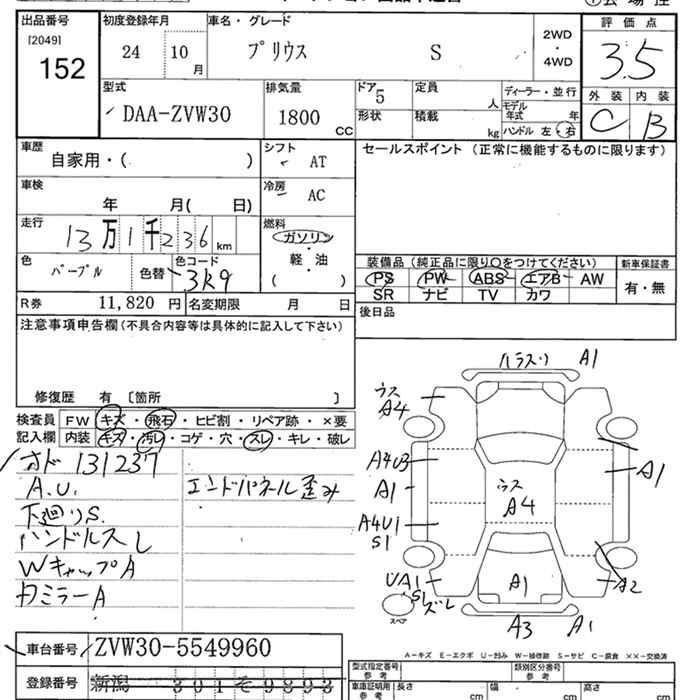 出品番号 初度登録年月 車名・グレード 評価点
[2049]
152
24 10月 プリウス S
2WD
・
4WD
3.5
型式 排気量 ドア 定員 ディーラー・並行 外装 内装
DAA-ZVW30 1800 CC 5 人
モデル年式 年
形状 積載 kg ハンドル 左・右
C B
車歴 シフト セールスポイント (正常に機能するものに限ります)
自家用・( ) AT
車検 冷房
年 月( 日) AC
走行 燃料
13万1千236km ガソリン
軽・油
( )
色 色替 色コード
パープル 3k9
装備品(純正品に限り○をつけてください) 新車保証書
PS PW ABS エアB AW 有・無
SR ナビ TV カワ
R券 11,820 円 名変期限 月 日
後日品
注意事項申告欄(不具合内容等は具体的に記入して下さい)
修復歴 有 〔箇所 〕
検査員 FW キズ・飛石・ヒビ割・リペア跡・×要
記入欄 内装 キズ・汚レ・コゲ・穴・スレ・キレ・破レ
131237
A.U. エンドパネル歪み
下廻りS.
ハンドルスレ
WキャップA
A1
ウス
A4
A4U3
A1
A1
ウス
A4
A4U1
S1
UA1
S1
ズレ
スペア
A1
A2
A3 A1
A-キズ E-エクボ U-凹み W-補修跡 S-サビ C-腐食 ××-交換済
車台番号 ZVW30-5549960
登録番号 新潟 301 そ 9893
型式指定番号 参考 類別区分番号 参考
車庫証明用 参考 長さ cm 幅 cm 高さ cm